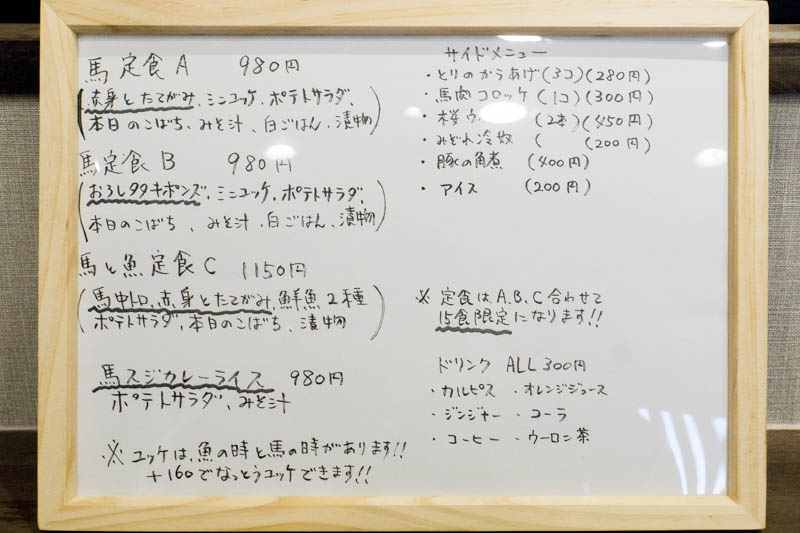 馬 定食 A 980円
(赤身とたてがみ、ミニユッケ、ポテトサラダ、
本日のこばち、みそ汁、白ごはん、漬物)
馬定食 B 980円
(おろしタタキポンズ、ミニユッケ、ポテトサラダ、
本日のこばち、みそ汁、白ごはん、漬物)
馬と魚 定食 C 1150円
(馬中トロ、赤身とたてがみ、鮮魚2種
ポテトサラダ、本日のこばち、漬物)
馬スジカレーライス 980円
ポテトサラダ、みそ汁
※ ユッケは、魚の時と馬の時があります!!
+160でなっとうユッケできます!!
サイドメニュー
・とりのからあげ(3コ)(280円)
・馬肉コロッケ(1コ)(300円)
・桜ウ (2本)(450円)
・みぞれ冷奴 ( (200円)
・豚の角煮 (400円)
・アイス (200円)
※ 定食は、A、B、C 合わせて
15食限定になります!!
ドリンク ALL 300円
・カルピス ・オレンジジュース
・ジンジャー ・コーラ
・コーヒー ・ウーロン茶